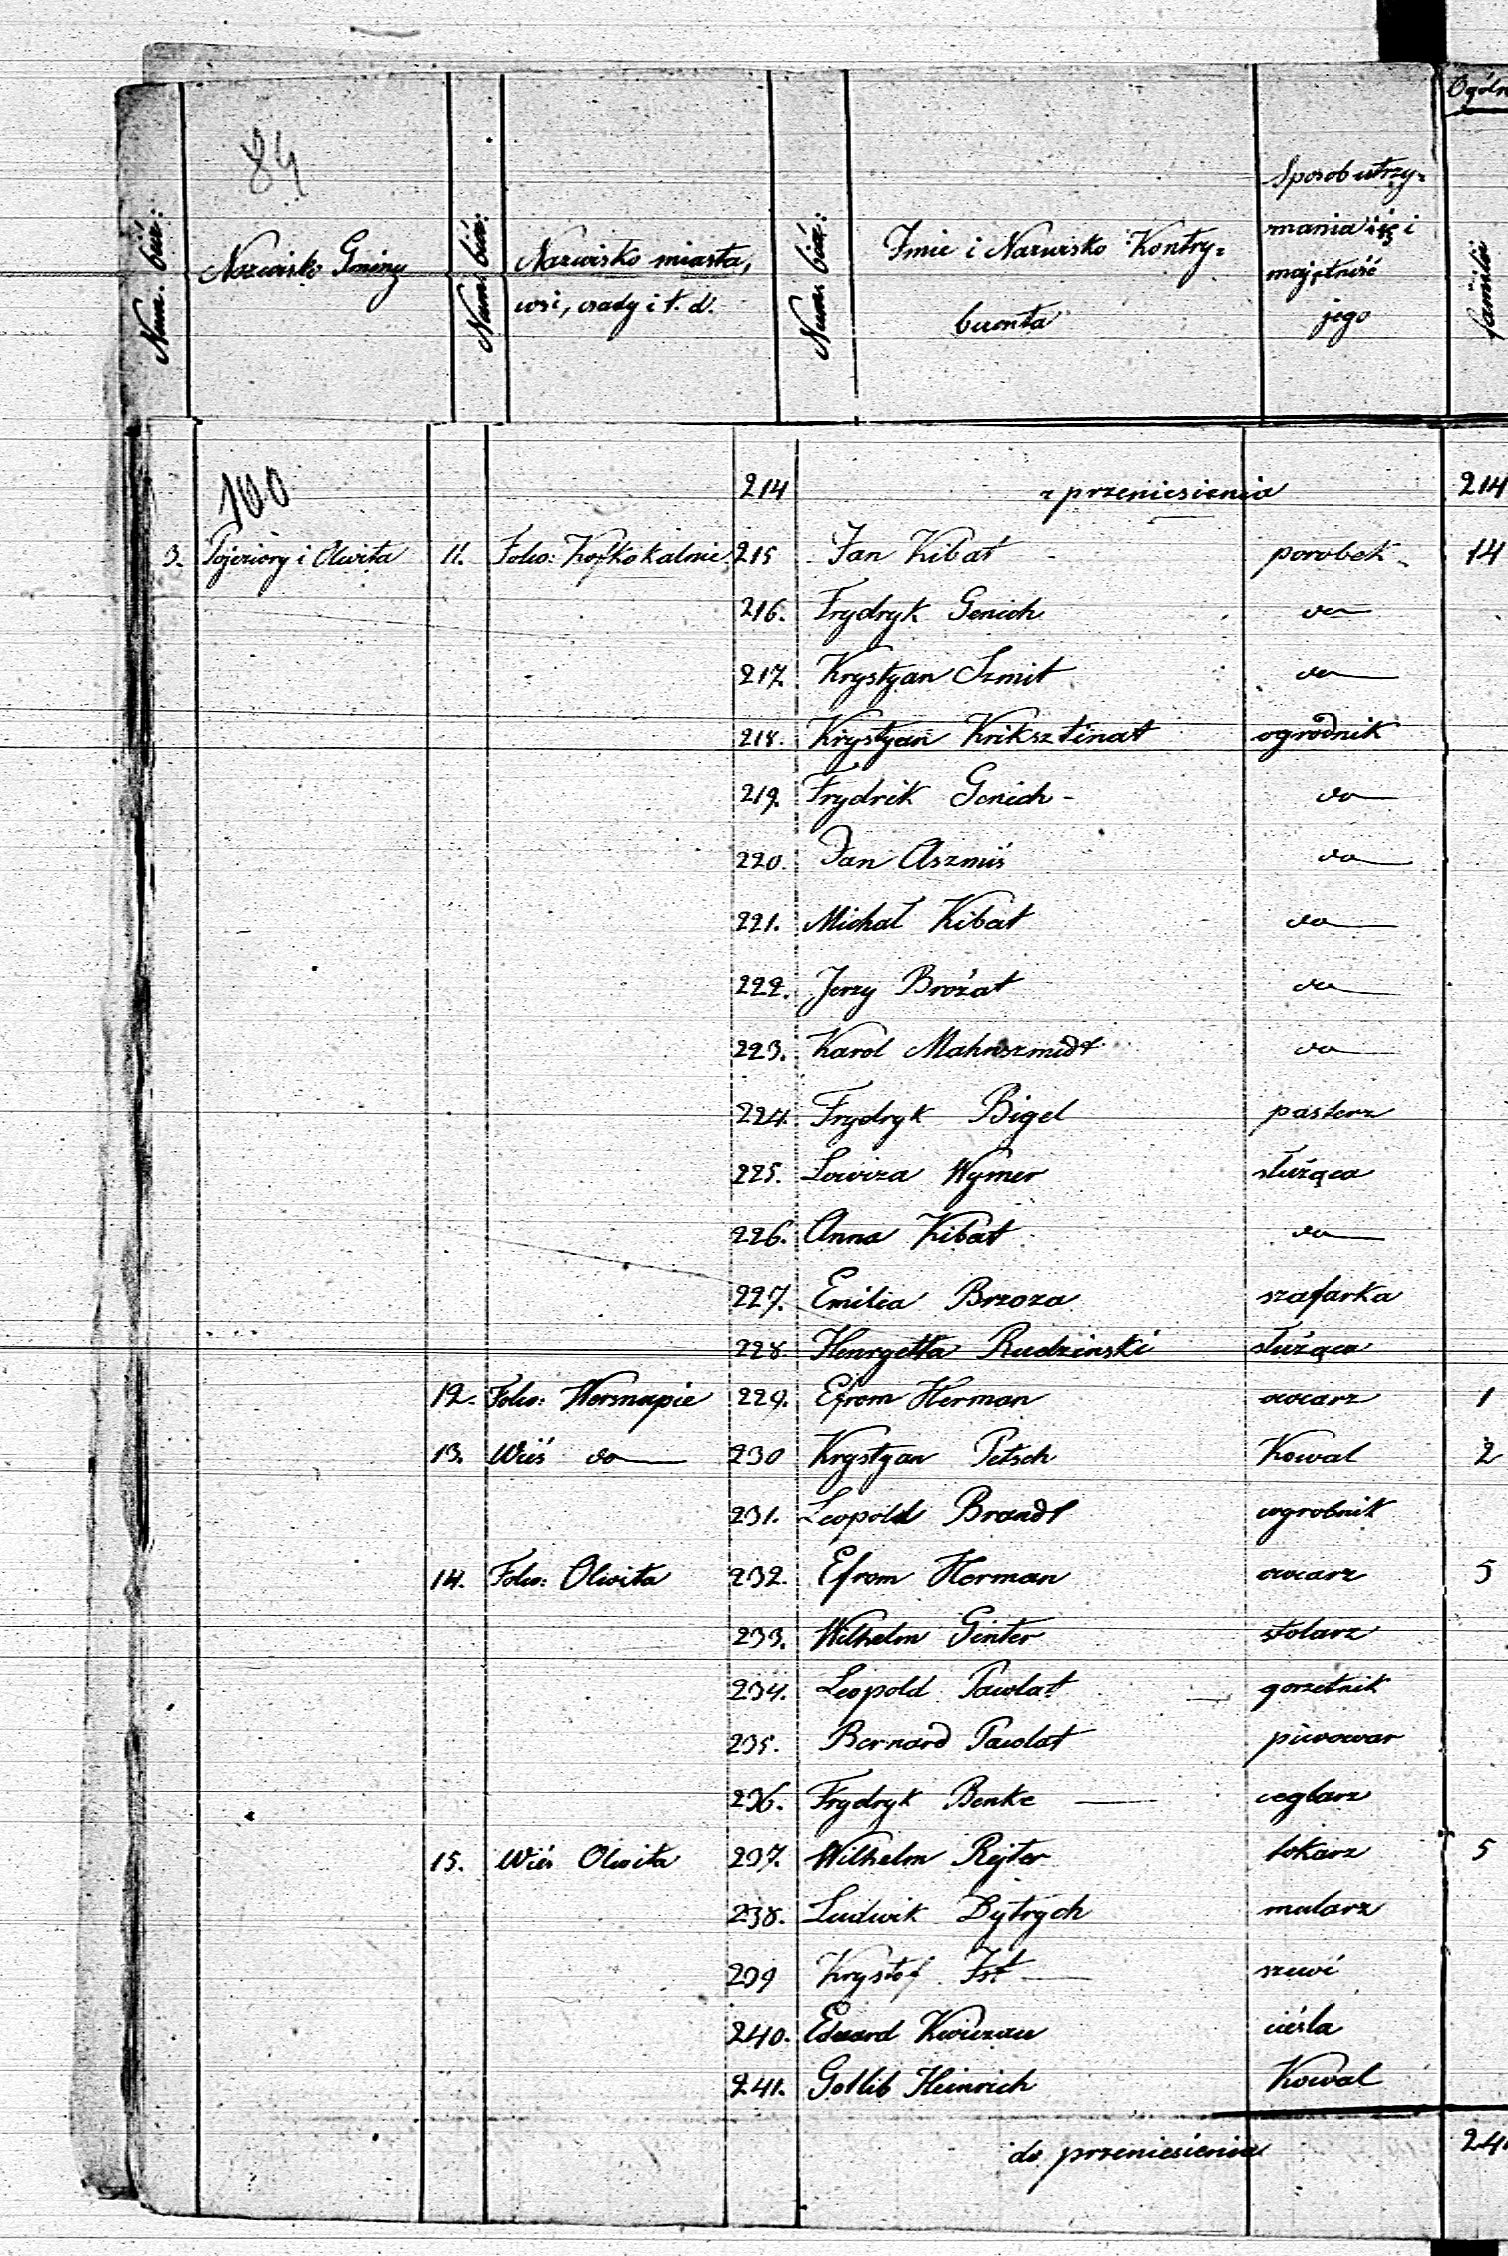 84
Ogóln
Num. bież:
Nazwisko Gminy
Num. bież:
Nazwisko miasta,
wsi, osady i t. d.
Num. bież:
Imie i Nazwisko Kontry-
buenta
Sposob utrzy-
mania się i
majętność
jego
familii
100
214 z przeniesienia 214
3. Pojeziory i Olwita 11. Folw: 215 Jan Kibat parobek 14
216. Frydryk Genich do
217. Krystyan Szmit do
218. Krystyan Kriksztinat ogrodnik
219. Frydrik Genich do
220. Jan Aszmis do
221. Michał Kibat do
222. Jerzy Brożat do
223. Karol do
224. Frydryk Bigel pasterz
225. Lowiza Wymer służąca
226. Anna Kibat do
227. Emilia Brzoza szafarka
228. Henrgetta Rudzinski służąca
12. Folw: Wersnupie 229. Efrom Herman owcarz 1
13. Wieś do 230 Krystyan Petsch Kowal 2
231. Leopold Brandt
14. Folw: Olwita 232. Efrom Herman owcarz 5
233. Wilhelm Ginter stolarz
234. Leopold Pawlat gorzelnik
235. Bernard Pawlat piwowar
236. Frydryk Benke ceglarz
15. Wieś Olwita 237. Wilhelm Rejter tokarz 5
238. Ludwik Dytrych mularz
239 Krystof szewc
240. Eduard cieśla
241. Gotlib Heinrich Kowal
do przeniesienia 24